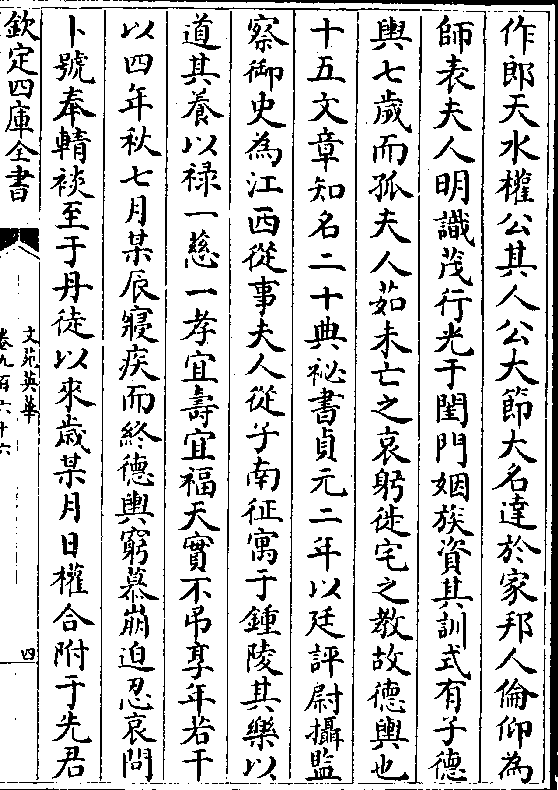 作郎天水權公其人公大節大名達於家邦人倫仰為
師表夫人明識茂行光于閨門姻族資其訓式有子德
輿七歲而孤夫人茹未亡之哀躬徙宅之教故德輿也
十五文章知名二十典祕書貞元二年以廷評尉攝監
察御史為江西從事夫人從子南征寓于鍾陵其樂以
道其養以祿一慈一孝宜壽宜福天實不弔享年若干
以四年秋七月某辰寢疾而終德輿窮慕崩迫忍哀問
卜號奉輤裧至于丹徒以來歲某月日權合附于先君
欽定四庫全書
文苑英華
卷九百六十六
四